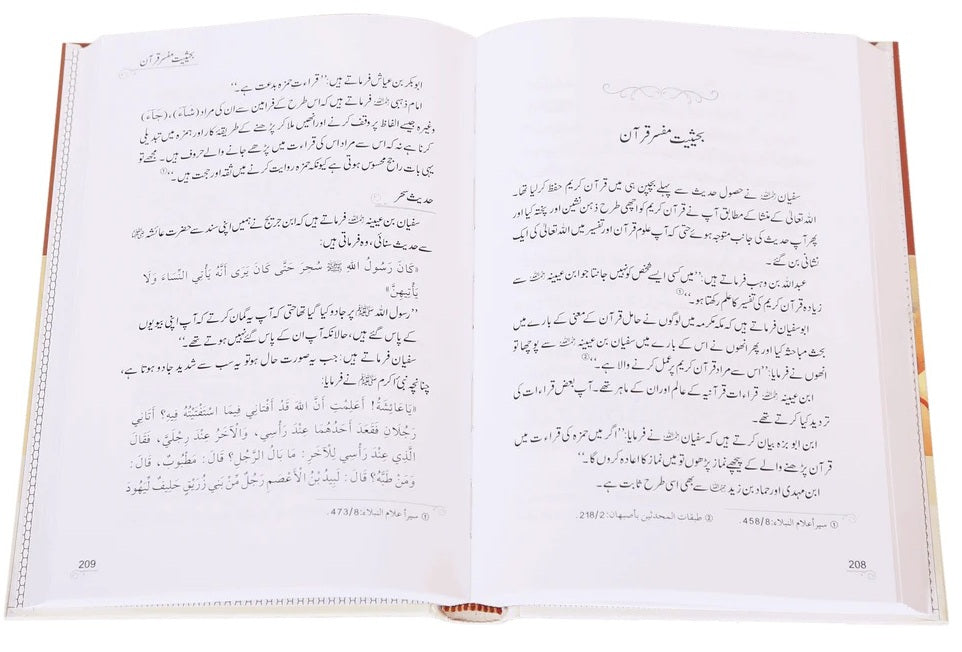 بحیثیت مفسر قرآن
سفیان رحمہ اللہ نے حصول حدیث سے پہلے بچپن ہی میں قرآن کریم حفظ کرلیا تھا۔
اللہ تعالیٰ کے منشا کے مطابق آپ نے قرآن کریم کو اچھی طرح ذہن نشین اور پختہ کیا اور
پھر آپ حدیث کی جانب متوجہ ہوے حتی کہ آپ علوم قرآن اور تفسیر میں اللہ تعالیٰ کی ایک
نشانی بن گئے۔
عبداللہ بن وہب فرماتے ہیں: ’’میں کسی ایسے شخص کو نہیں جانتا جو ابن عیینہ رحمہ اللہ سے
زیادہ قرآن کریم کی تفسیر کا علم رکھتا ہو۔‘‘①
ابوسفیان فرماتے ہیں کہ مکہ مکرمہ میں لوگوں نے حامل قرآن کے معنی کے بارے میں
بحث مباحثہ کیا اور پھر انھوں نے اس کے بارے میں سفیان بن عیینہ رحمہ اللہ سے پوچھا تو
انھوں نے فرمایا: ’’اس سے مراد قرآن کریم پر عمل کرنے والا ہے۔‘‘②
ابن عیینہ رحمہ اللہ قراءات قرآنیہ کے عالم اور ان کے ماہر تھے۔ آپ بعض قراءات کی
تردید کیا کرتے تھے۔
ابن ابو بزہ بیان کرتے ہیں کہ سفیان رحمہ اللہ نے فرمایا: ’’اگر میں حمزہ کی قراءت میں
قرآن پڑھنے والے کے پیچھے نماز پڑھوں تو میں نماز کا اعادہ کروں گا۔‘‘
ابن مہدی اور حماد بن زید رحمہ اللہ سے بھی اسی طرح ثابت ہے۔
① سیر أعلام النبلاء: 458/8. ② طبقات المحدثین بأصبهان: 218/2.
208
بحیثیت مفسر قرآن
ابوبکر بن عیاش فرماتے ہیں: ’’قراءت حمزہ بدعت ہے۔‘‘
امام ذہبی رحمہ اللہ فرماتے ہیں کہ اس طرح کے فرامین سے ان کی مراد (شَاءَ)، (جَاءَ)
وغیرہ جیسے الفاظ پر وقف کرنے اور انھیں ملا کر پڑھنے کے طریقۂ کار اور ہمزہ میں تبدیلی
کرنا ہے نہ کہ اس سے مراد اس کی قراءت میں پڑھے جانے والے حروف ہیں۔ مجھے تو
یہی بات راجح محسوس ہوتی ہے کیونکہ حمزہ روایت کرنے میں ثقہ اور حجت ہیں۔‘‘①
حدیث سحر
سفیان بن عیینہ رحمہ اللہ فرماتے ہیں کہ ابن جریج نے ہمیں اپنی سند سے حضرت عائشہ
سے حدیث سنائی، وہ فرماتی ہیں:
«كَانَ رَسُولُ اللهِ ﷺ سُحِرَ حَتَّى كَانَ يَرَى أَنَّهُ يَأْتِي النِّسَاءَ وَلَا
يَأْتِيهِنَّ»
’’رسول اللہ ﷺ پر جادو کیا گیا تھا حتی کہ آپ یہ گمان کرتے کہ آپ اپنی بیویوں
کے پاس گئے ہیں، حالانکہ آپ ان کے پاس گئے نہیں ہوتے تھے۔‘‘
سفیان فرماتے ہیں: جب یہ صورت حال ہو تو یہ سب سے شدید جادو ہوتا ہے،
چنانچہ نبی اکرم ﷺ نے فرمایا:
«يَا عَائِشَةُ! أَعَلِمْتِ أَنَّ اللهَ قَدْ أَفْتَانِي فِيمَا اسْتَفْتَيْتُهُ فِيهِ؟ أَتَانِي
رَجُلَانِ فَقَعَدَ أَحَدُهُمَا عِنْدَ رَأْسِي، وَالْآخَرُ عِنْدَ رِجْلَيَّ، فَقَالَ
الَّذِي عِنْدَ رَأْسِي لِلْآخَرِ: مَا بَالُ الرَّجُلِ؟ قَالَ: مَطْبُوبٌ، قَالَ:
وَمَنْ طَبَّهُ؟ قَالَ: لَبِيدُ بْنُ الْأَعْصَمِ رَجُلٌ مِّنْ بَنِي زُرَيْقٍ حَلِيفٌ لِّيَهُودَ
① سیر أعلام النبلاء: 473/8.
209